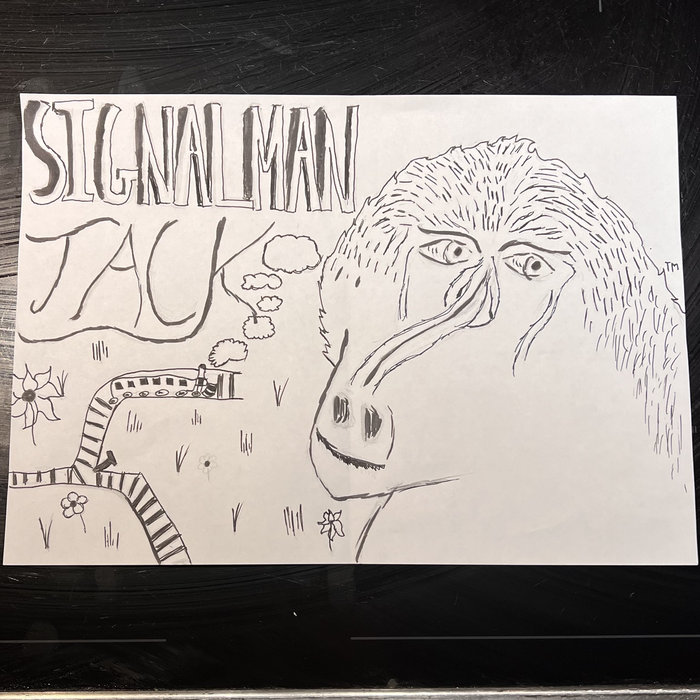 SIGNALMAN
JACK
TM